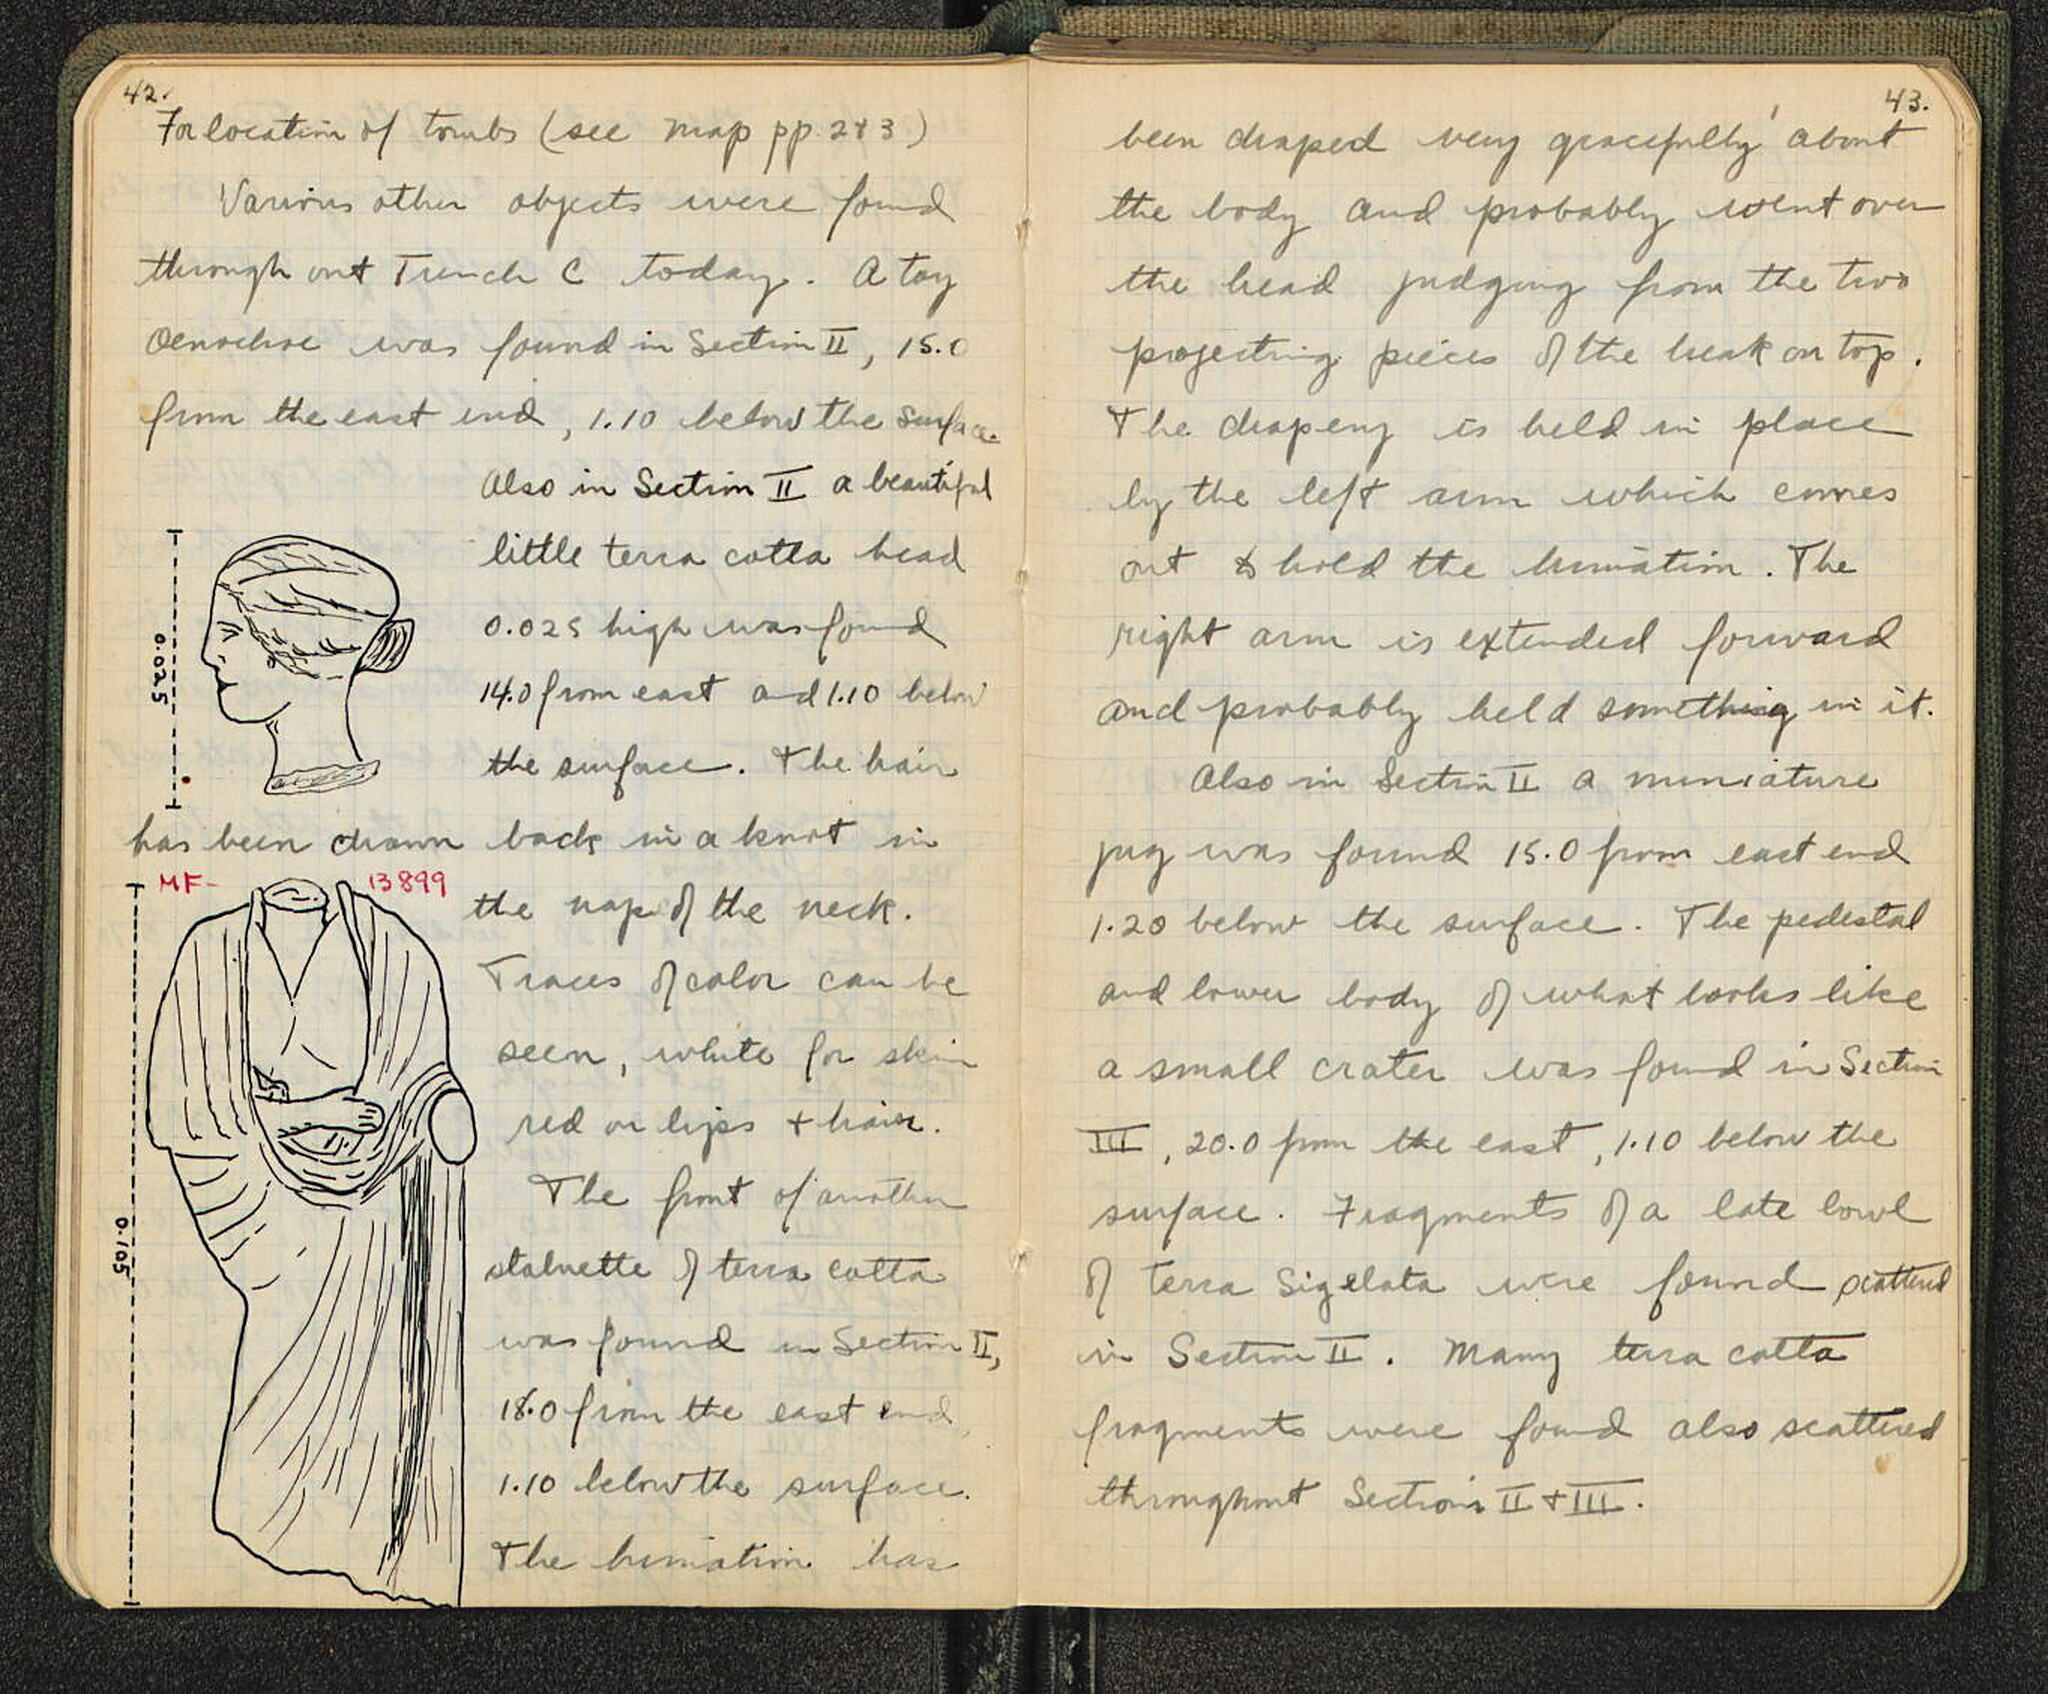 42.
For location of tombs (see map pp. 2 & 3)
Various other objects were found
through out Trench C today. A toy
oenochoe was found in Section II, 15.0
from the east end, 1.10 below the surface.
Also in Section II a beautiful
little terra cotta head
0.025 high was found
14.0 from east and 1.10 below
the surface. The hair
has been drawn back in a knot in
the nape of the neck.
Traces of color can be
seen, white for skin
red on lips + hair.
The front of another
statuette of terra cotta
was found in Section II,
18.0 from the east end,
1.10 below the surface.
The himation has
0.025
MF- 13899
0.105
43.
been draped very gracefully about
the body and probably went over
the head judging from the two
projecting pieces of the break on top.
The drapery is held in place
by the left arm which comes
out to hold the himation. The
right arm is extended forward
and probably held something in it.
Also in Section II a miniature
jug was found 15.0 from east end
1.20 below the surface. The pedestal
and lower body of what looks like
a small crater was found in Section
III, 20.0 from the east, 1.10 below the
surface. Fragments of a late bowl
of terra Sigelata were found scattered
in Section II. Many terra cotta
fragments were found also scattered
throughout Sections II + III.